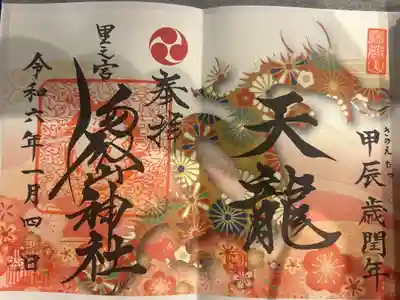 甲辰歳閏年
きのえたつ
天龍
奉拝
里之宮
湯殿山神社
令和六年一月四日